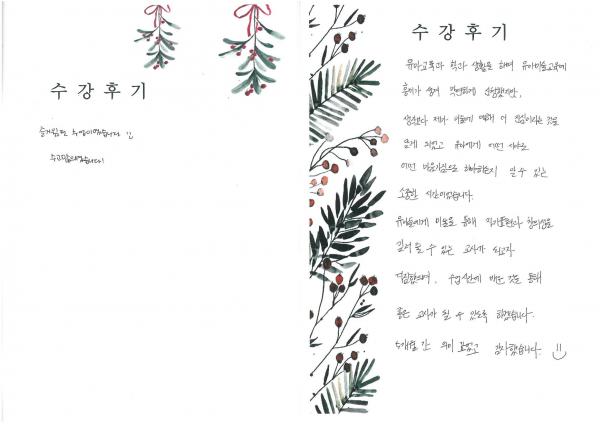 수강후기
즐거웠던 수업이었습니다
수고많으셨습니다!
수강후기
유아교육과 학과 생활을 하며 유아미술교육에
흥미가 생겨 막연하게 신청했지만,
생각보다 제가 미술에 대해 더 진심이라는 것을
알게 되었고 유아에게 어떤 식으로
어떤 마음가짐으로 해야하는지 알 수 있는
소중한 시간이었습니다.
유아들에게 미술을 통해 자아존중감과 창의성을
길러 줄 수 있는 교사가 되고자
다짐했으며, 수업시간에 배운 것을 통해
좋은 교사가 될 수 있도록 하겠습니다.
5개월 간 의미 깊었고 감사했습니다.